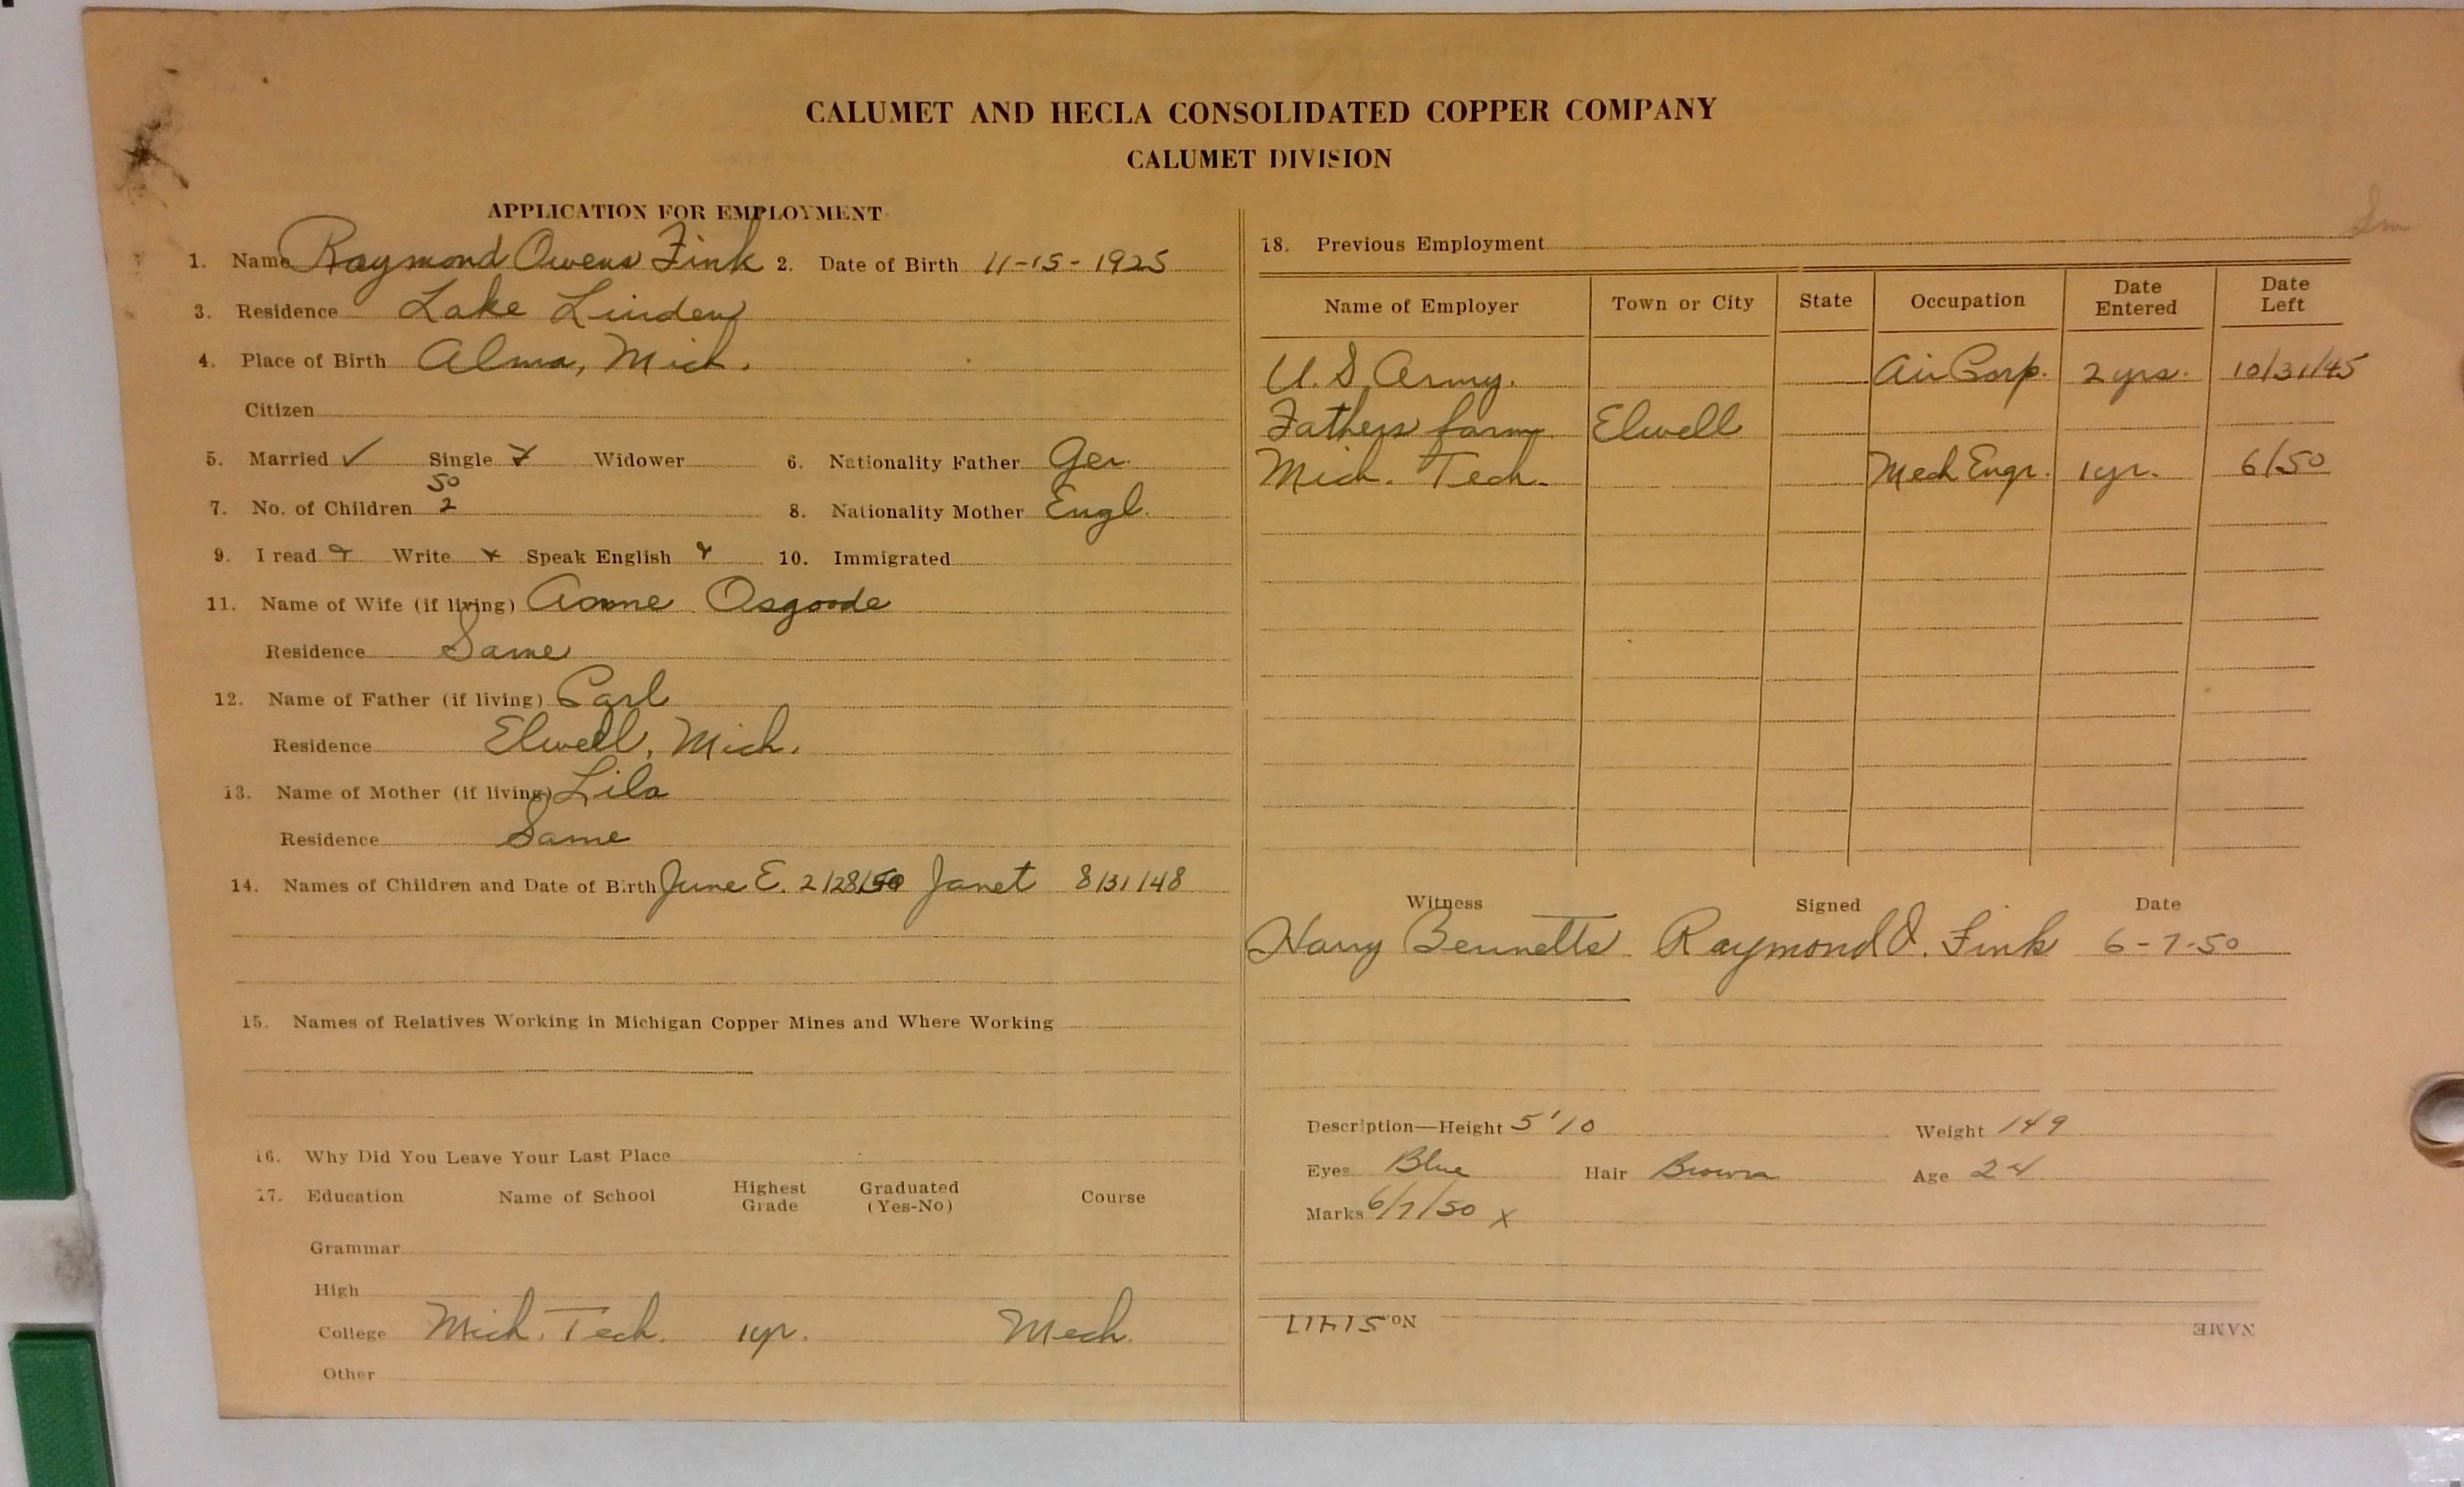 CALUMET AND HECLA CONSOLIDATED COPPER COMPANY
CALUMET DIVISION
APPLICATION FOR EMPLOYMENT
1. Name Raymond Owens Fink 2. Date of Birth 11-15-1925
3. Residence Lake Linden
4. Place of Birth Alma, Mich.
Citizen
5. Married ✓ Single Widower 6. Nationality Father Ger.
50
7. No. of Children 2 8. Nationality Mother Engl.
9. I read x Write x Speak English x 10. Immigrated
11. Name of Wife (if living) Anne Osgoode
Residence Same
12. Name of Father (if living) Carl
Residence Elwell, Mich.
13. Name of Mother (if living) Lila
Residence Same
14. Names of Children and Date of Birth June E. 2/28/50 Janet 8/31/48
15. Names of Relatives Working in Michigan Copper Mines and Where Working
16. Why Did You Leave Your Last Place
17. Education Name of School Highest Grade Graduated (Yes-No) Course
Grammar
High
College Mich. Tech. 1yr. Mech.
Other
18. Previous Employment
Name of Employer Town or City State Occupation Date Entered Date Left
U.S. Army. Air Corp. 2 yrs. 10/31/45
Fathers farm Elwell
Mich. Tech. Mech Engr. 1yr. 6/50
Witness Signed Date
Harry Bennetts Raymond O. Fink 6-7-50
Description—Height 5'10 Weight 149
Eyes Blue Hair Brown Age 24
Marks 6/7/50 x
NAME No.